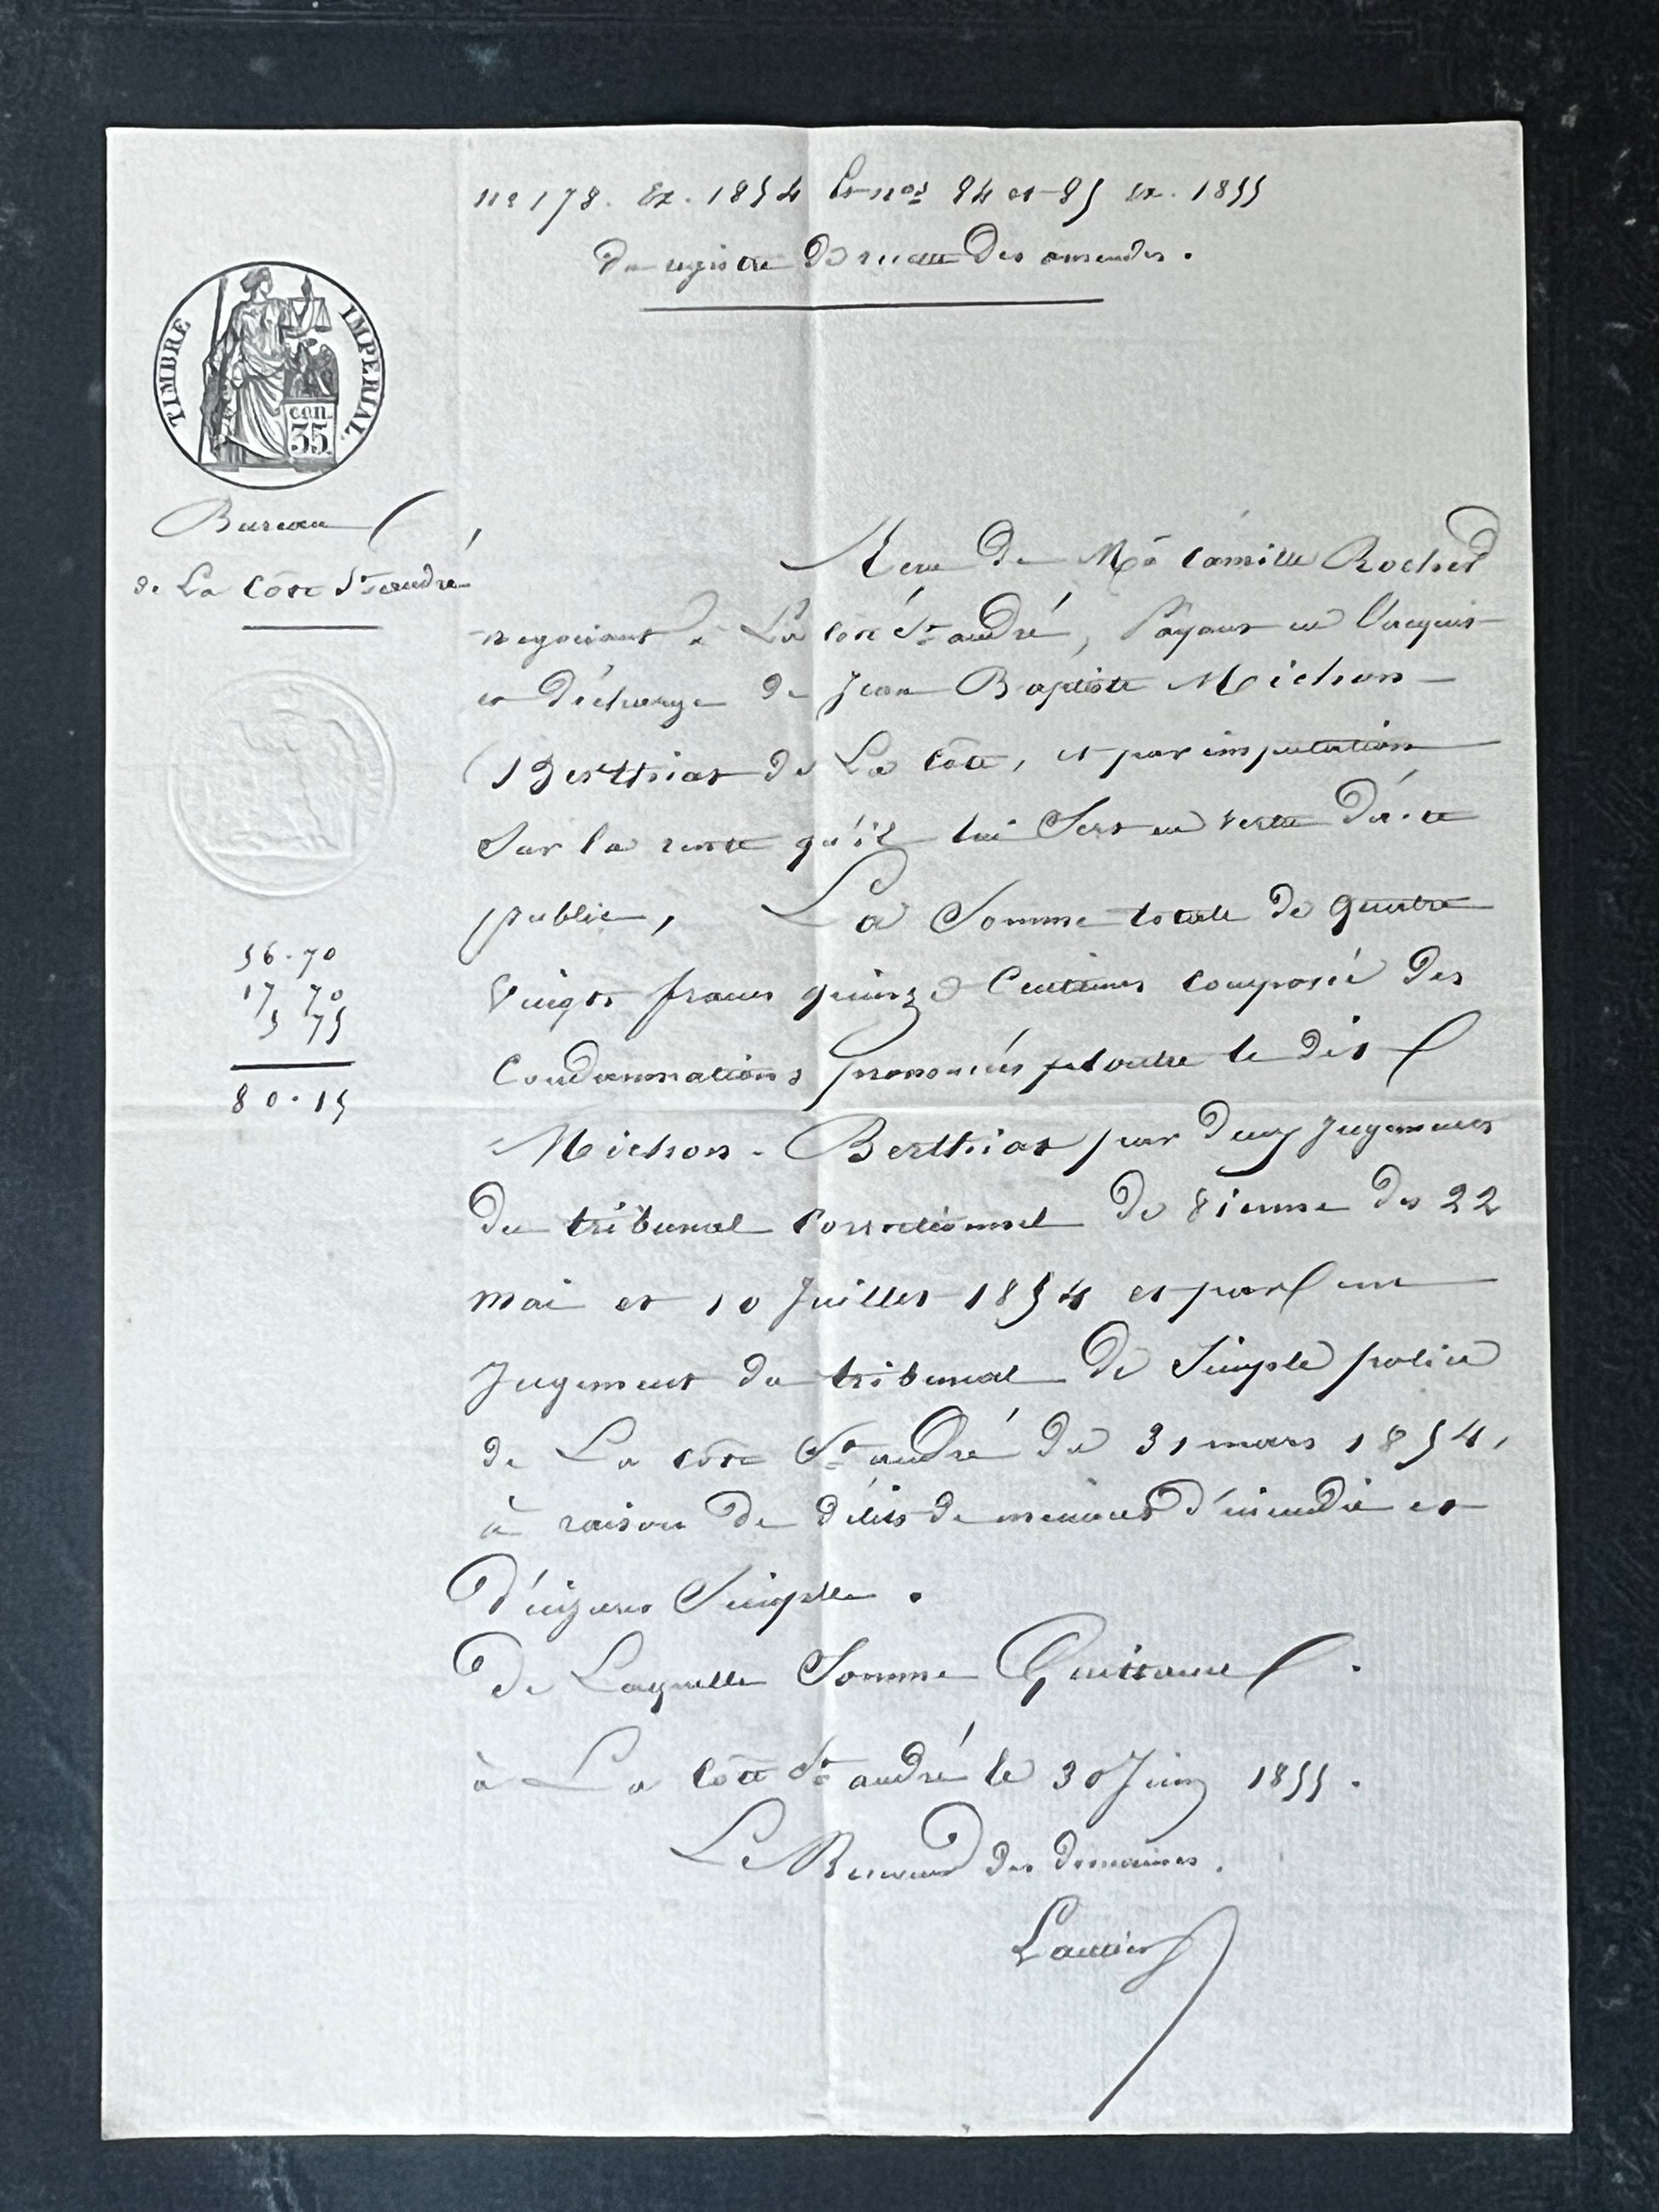 no 178. Ex. 1854 et nos 84 et 85 ex. 1855
du registre de recette des amendes.
TIMBRE IMPERIAL.
CEN.
35.
Bureau
de La Côte St andré
Reçu de Mr Camille Rocher
negociant à La Côte St andré, Payant en l'acquit
et décharge de Jean Baptiste Michon
Berthiat de La Côte, et par imputation
Sur la rente qu'il lui Sert en vertu d'acte
public, La Somme totale de quatre
Vingts francs quinze Centimes composée des
Condamnations prononcées contre le dit
Michon-Berthiat par deux Jugements
du tribunal Correctionnel de Vienne des 22
mai et 10 Juillet 1854 et par un
Jugement du tribunal de Simple police
de La Côte St andré du 31 mars 1854,
à raison de délits de menaces d'incendie et
D'injures Simples.
De Laquelle Somme Quittance.
à La Côte St andré le 30 Juin 1855.
Le Receveur des domaines.
56.70
17 70
5 75
80.15